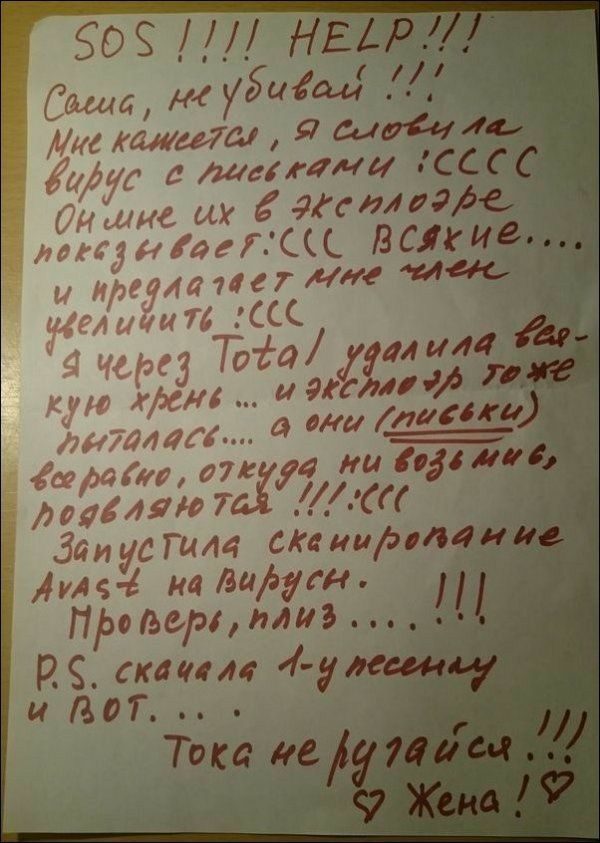 SOS !!!! HELP!!!
Саша, не убивай !!!
Мне кажется, я словила
вирус с письками :СССС
Он мне их в эксплоэре
показывает:ССС ВСЯКИЕ....
и предлагает мне член
увеличить :ССС
Я через Total удалила вся-
кую хрень... и эксплоэр тоже
пыталась.... а они (письки)
все равно, откуда ни возьмись,
появляются !!!:ССС
Запустила сканирование
Avast на вирусы.
Проверь, плиз .... !!!
P.S. скачала 1-у песенку
и ВОТ. . . .
Тока не ругайся !!!
♡ Жена! ♡